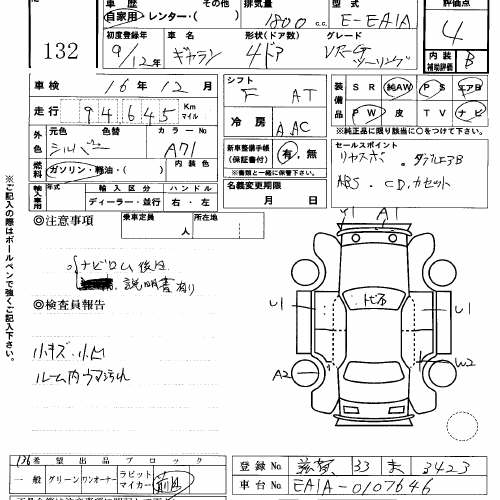 車歴 その他 排気量 型式 評価点
自家用・レンター・( ) 1800 c.c. E-EA1A 4
132
初度登録年 車名 形状(ドア数) グレード
9/12年 ギャラン 4ドア VR-G ツーリング
内装補助評価 B
車検 16年 12月
シフト F AT
装備品 SR 純AW PS エアB
PW 皮 TV ナビ
※純正品に限り該当に○をつけて下さい。
走行 94645 Km マイル
冷房 AAC
外色 元色 色替 カラーNo
シルバー A71
セールスポイント
リヤスポ . ダブルエアB
ABS . CD.カセット
新車整備手帳(保証書付) 有.無
※書類と一緒に保管下さい。
燃料 ガソリン・軽油・( ) 内装色
輸入車用 年式 輸入区分 ハンドル
ディーラー・並行 右・左
名義変更期限
月 日
◎注意事項 乗車定員 人 所在地
ナビロム後日
説明書有り
◎検査員報告
小キズ・小凹
ルーム内ウス汚れ
※ご記入の際はボールペンで強くご記入下さい。
A1
U1 トビ有 U1
A2 W2
希望出品ブロック
一般 グリーン ワンオーナー ラビットマイカー
登録No 滋賀 33 ま 3423
車台No EA1A-0107646